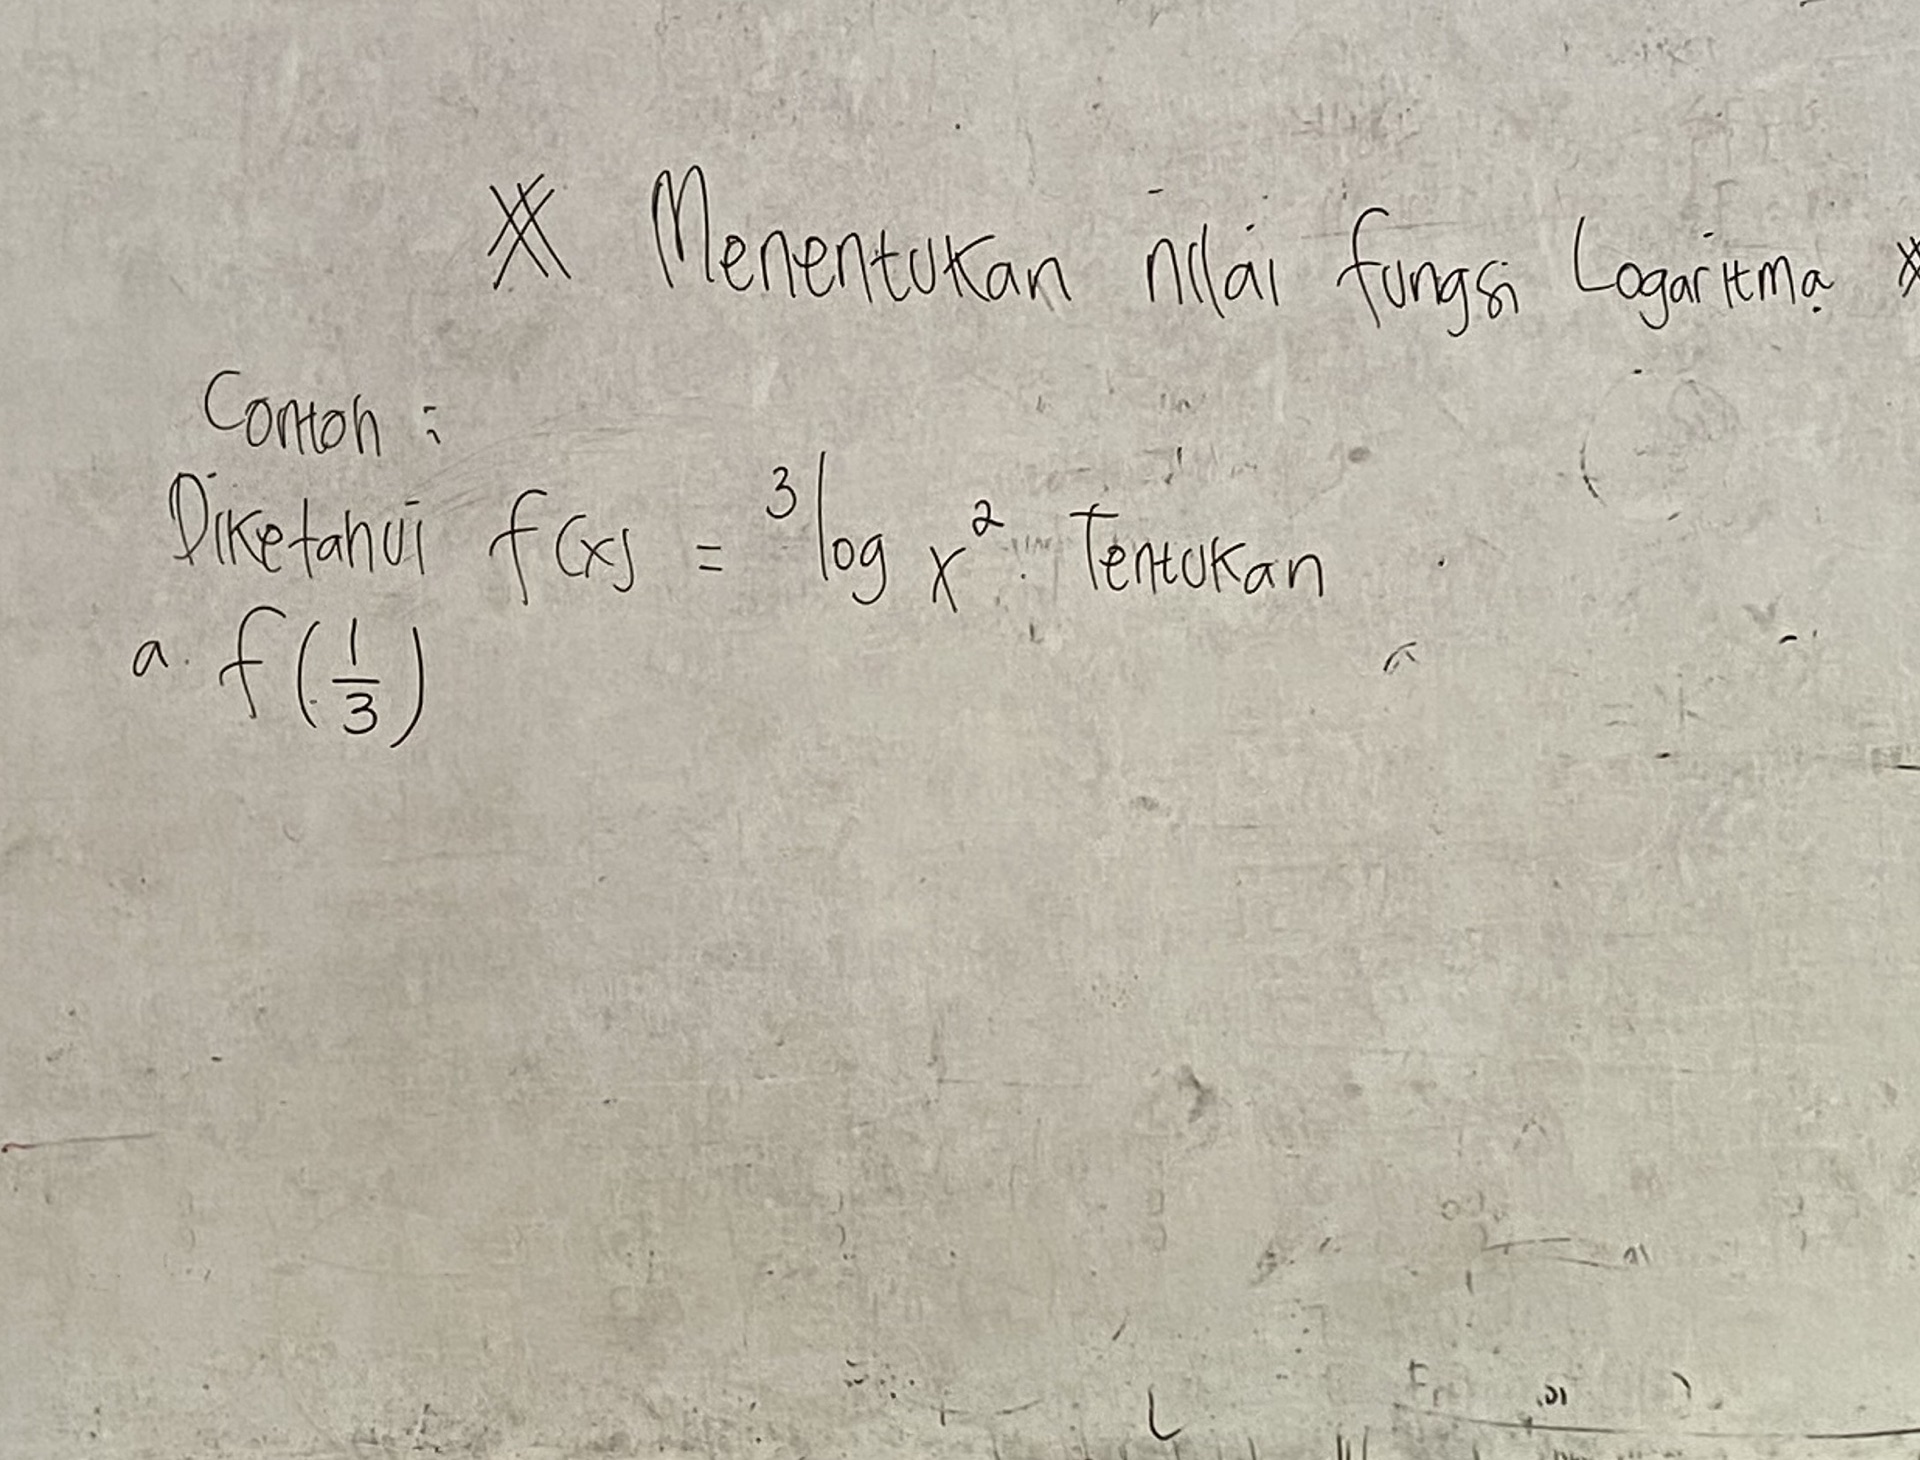 ※ Menentukan nilai fungsi Logaritma ※
Contoh :
Diketahui f(x) = ³log x². Tentukan
a. f(1/3)